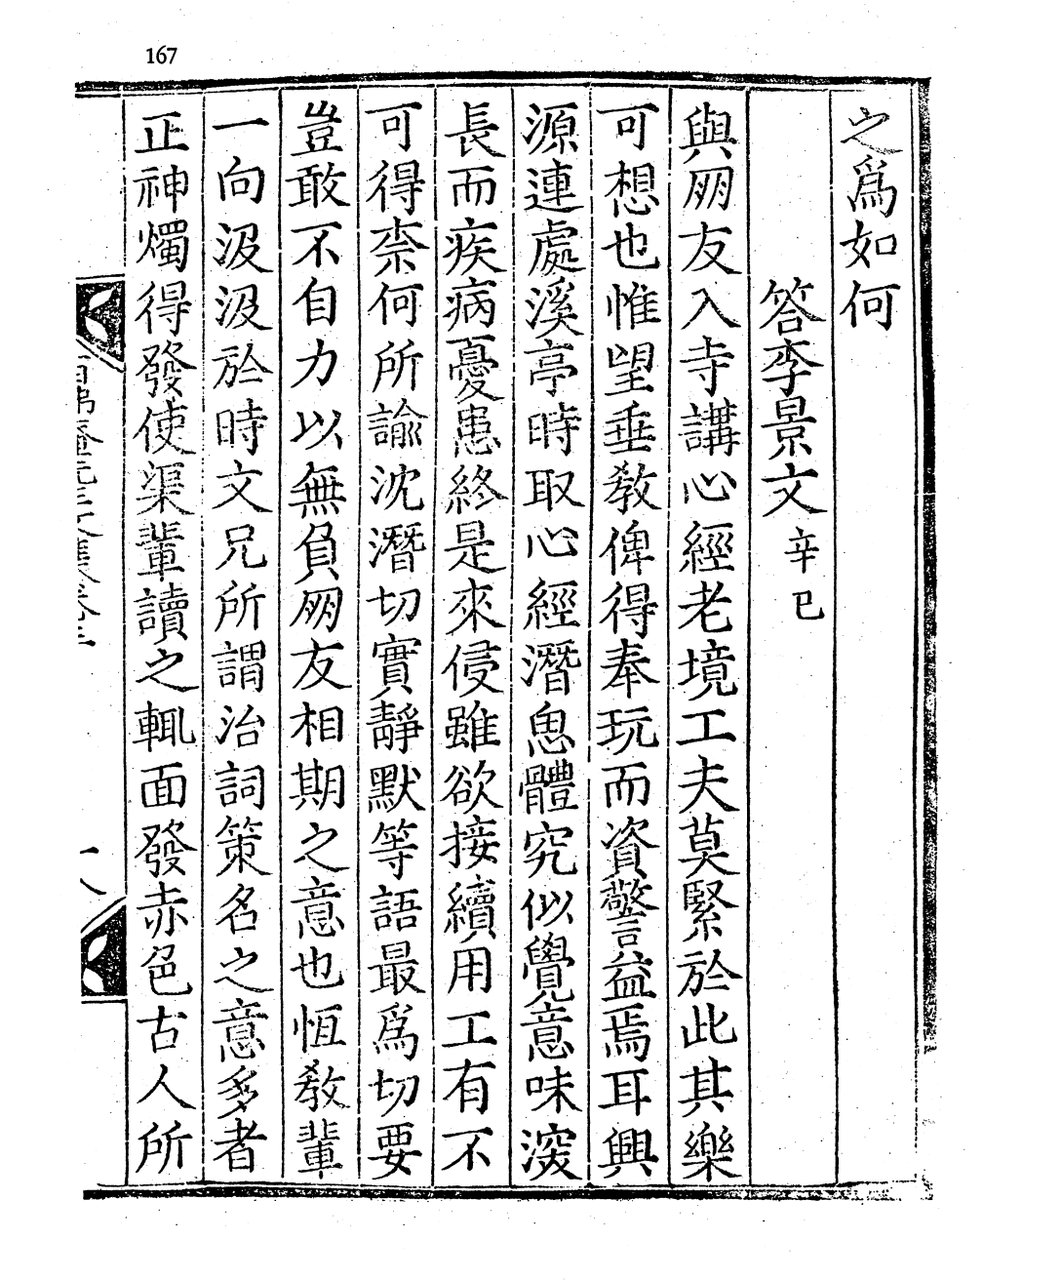 167
之爲如何
答李景文 辛巳
與朋友入寺講心經老境工夫莫緊於此其樂
可想也惟望垂敎俾得奉玩而資警益焉耳興
源連處溪亭時取心經潛思體究似覺意味深
長而疾病憂患終是來侵雖欲接續用工有不
可得柰何所諭沈潛切實靜默等語最爲切要
豈敢不自力以無負朋友相期之意也恆敎輩
一向汲汲於時文兄所謂治詞策名之意多者
正神燭得發使渠輩讀之輒面發赤色古人所